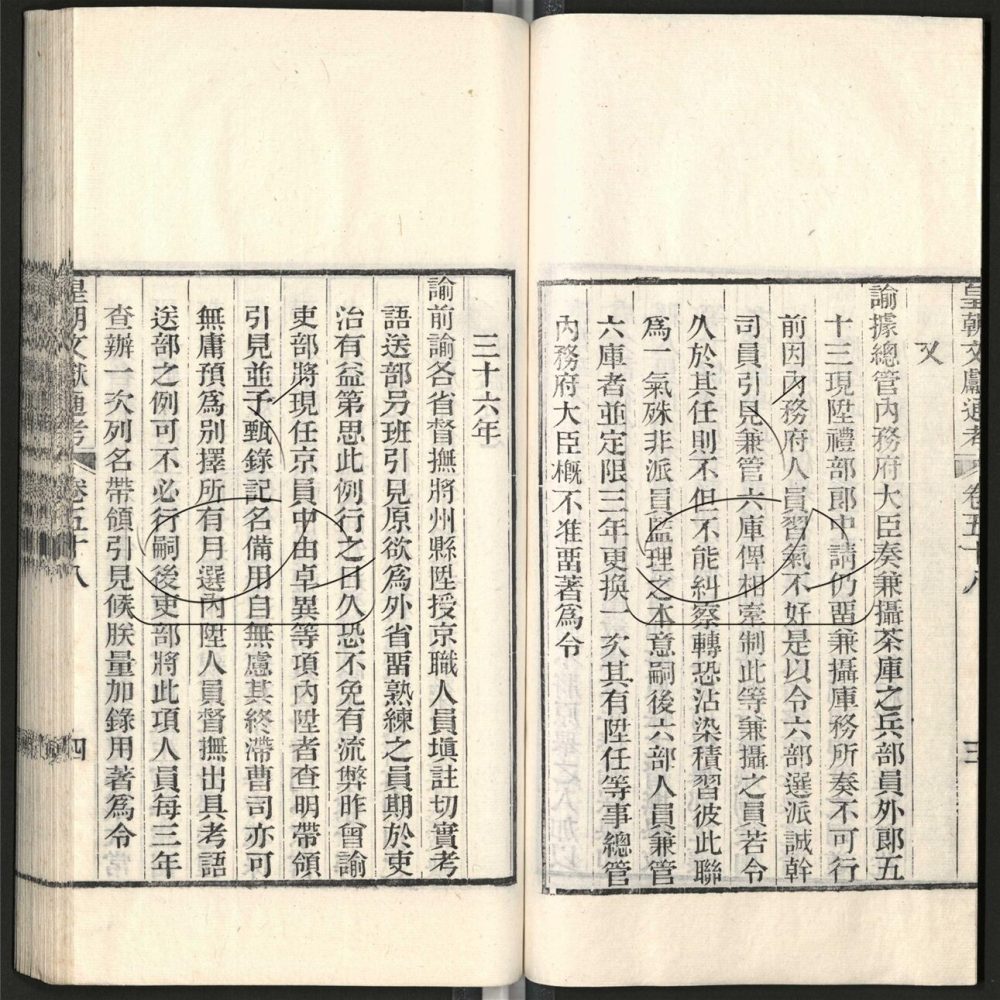 皇朝文獻通考 卷五十八 三
又
諭據總管內務府大臣奏兼攝茶庫之兵部員外郎五
十三現陞禮部郎中請仍畱兼攝庫務所奏不可行
前因內務府人員習氣不好是以令六部選派誠幹
司員引見兼管六庫俾相牽制此等兼攝之員若令
久於其任則不但不能糾察轉恐沾染積習彼此聯
爲一氣殊非派員監理之本意嗣後六部人員兼管
六庫者並定限三年更換一次其有陞任等事總管
內務府大臣概不准畱著爲令
三十六年
諭前諭各省督撫將州縣陞授京職人員塡註切實考
語送部另班引見原欲爲外省畱熟練之員期於吏
治有益第思此例行之日久恐不免有流弊昨曾諭
吏部將現任京員中由卓異等項內陞者查明帶領
引見並予甄錄記名備用自無慮其終滯曹司亦可
無庸預爲別擇所有月選內陞人員督撫出具考語
送部之例可不必行嗣後吏部將此項人員每三年
查辦一次列名帶領引見候朕量加錄用著爲令
皇朝文獻通考 卷五十八 四